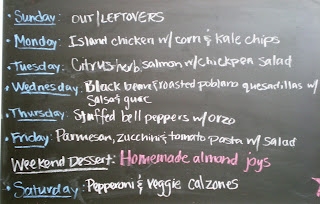 Sunday: OUT/LEFTOVERS
Monday: Island chicken w/ corn & kale chips
Tuesday: Citrus herb salmon w/ chickpea salad
Wednesday: Black bean & roasted poblano quesadillas w/
salsa & guac
Thursday: Stuffed bell peppers w/ orzo
Friday: Parmesan, zucchini & tomato pasta w/ salad
Weekend Dessert: Homemade almond joys
Saturday: Pepperoni & veggie calzones